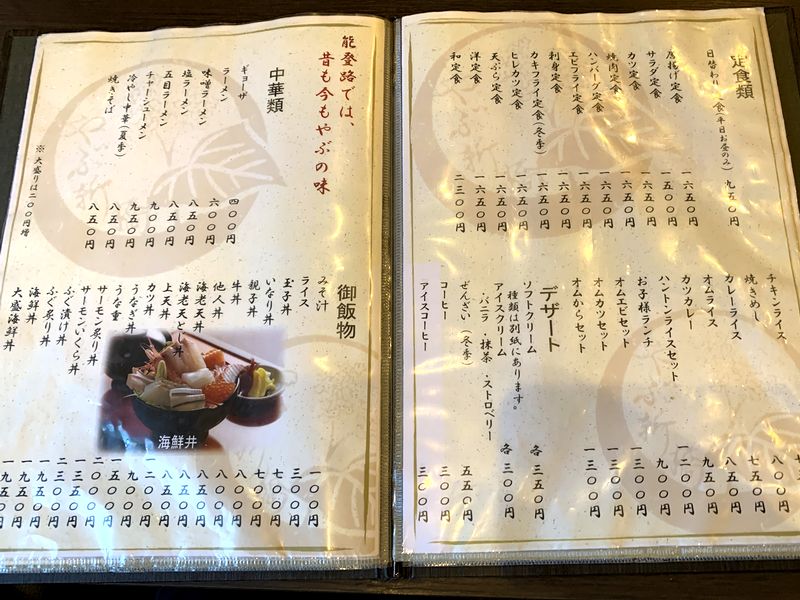 定食類
日替わり定食(平日お昼のみ) 九五〇円
唐揚げ定食 一六五〇円
サラダ定食 一五〇〇円
カツ定食 一六五〇円
焼肉定食 一六五〇円
ハンバーグ定食 一六五〇円
エビフライ定食 一六五〇円
刺身定食 一六五〇円
カキフライ定食(冬季) 一六五〇円
ヒレカツ定食 一六五〇円
天ぷら定食 一六五〇円
洋定食 一六五〇円
和定食 二三〇〇円
チキンライス
焼きめし 八〇〇円
カレーライス 七〇〇円
オムライス 八五〇円
カツカレー 九五〇円
ハントンライスセット 一二〇〇円
お子様ランチ 九〇〇円
オムエビセット 一三〇〇円
オムカツセット 一三〇〇円
オムからセット 一三〇〇円
デザート
ソフトクリーム 各 三五〇円
種類は別紙にあります。
アイスクリーム 各 三〇〇円
・バニラ・抹茶・ストロベリー
ぜんざい(冬季) 五五〇円
コーヒー 三〇〇円
アイスコーヒー 三〇〇円
能登路では、
昔も今もやぶの味
中華類
ギョーザ 四〇〇円
ラーメン 六〇〇円
味噌ラーメン 八五〇円
塩ラーメン 八五〇円
五目ラーメン 九〇〇円
チャーシューメン 九五〇円
冷やし中華(夏季) 八五〇円
焼きそば 八五〇円
※大盛りは二〇〇円増
御飯物
みそ汁 一〇〇円
ライス 三〇〇円
玉子丼 七〇〇円
いなり丼 七〇〇円
親子丼 八〇〇円
牛丼 八〇〇円
他人丼
海老天丼 八五〇円
海老天とじ丼 八五〇円
上天丼 一二〇〇円
カツ丼 九〇〇円
うなぎ丼 一五〇〇円
うな重 二〇〇〇円
サーモン炙り丼
サーモンいくら丼
ふぐ漬け丼
ふぐ炙り丼
海鮮丼 一九五〇円
大盛海鮮丼
海鮮丼